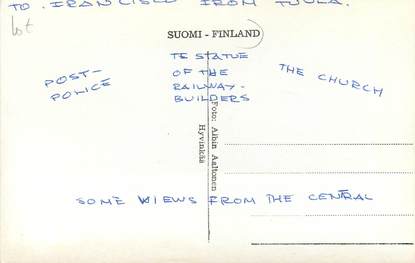 TO. FRANCISCO FROM TUULA.
lot
SUOMI - FINLAND
POST-
POLICE
TE STATUE
OF THE
RAILWAY-
BUILDERS
THE CHURCH
Foto: Albin Aaltonen
Hyvinkää
SOME VIEWS FROM THE CENTRAL